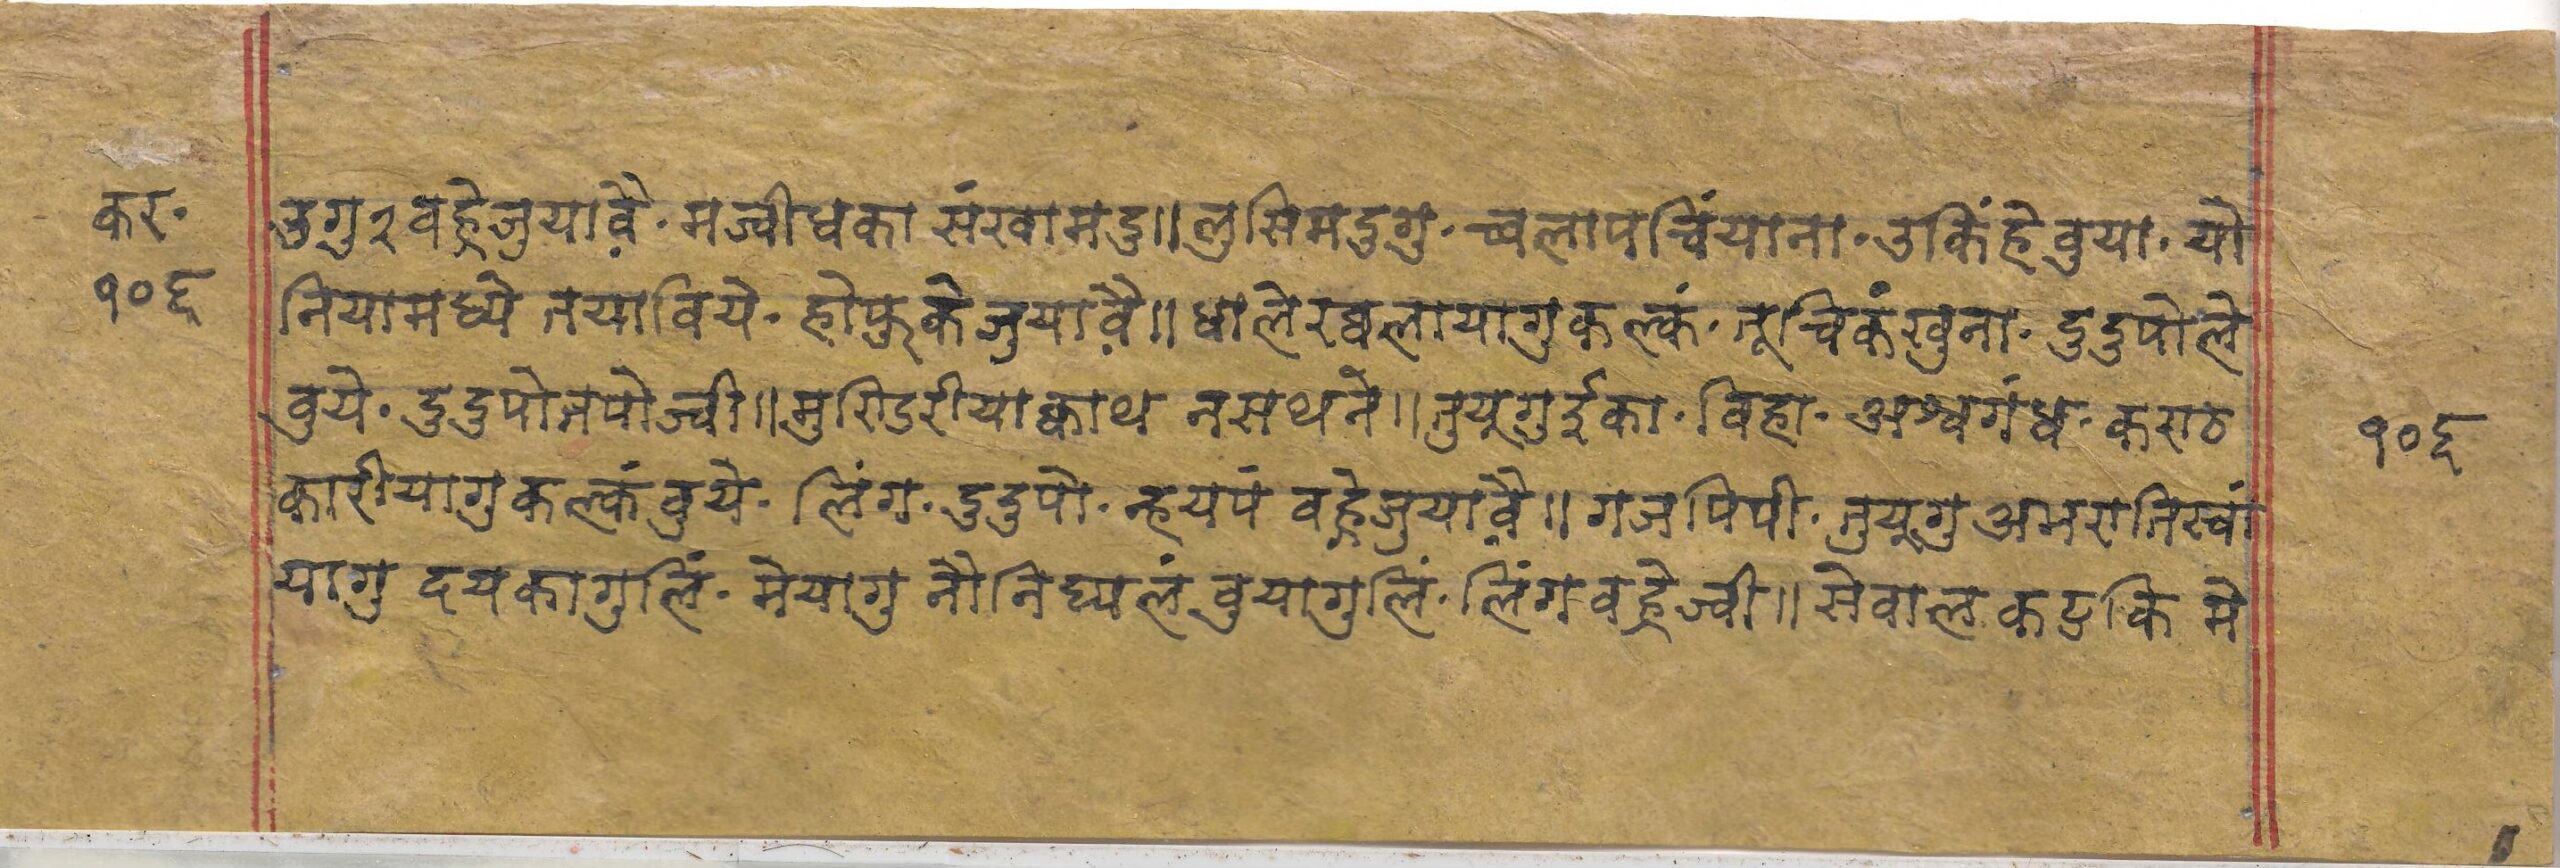 कर॰
१०६
उगु२वह्रेजुयावै॰मज्वीधकासंखामदु॥लुसिमदुगु॰च्वलापचिंयाना॰उकिंहेवुया॰यो
नियामध्ये तयाविये॰होफुकेजुयावै॥धालेरच्वलायागुकल्कं॰नूचिकंखुना॰दुदुपोले
वुये॰दुदुपोतपोज्वी॥मुरिडरीयाक्वाथ नसथने॥तुयूगुईका॰विहा॰अश्वगंध॰कराठ
कारीयागुकल्कंवुये॰लिंग॰दुदुपो॰न्हयपं वह्रेजुयावै॥गजपिपी॰तुयूगुअमरातिस्वां
यागु दयकागुलिं॰मेयागु नौनिघ्यलं वुयागुलिं॰लिंगवह्रेज्वी॥सेवाल कटुकि मे
१०६